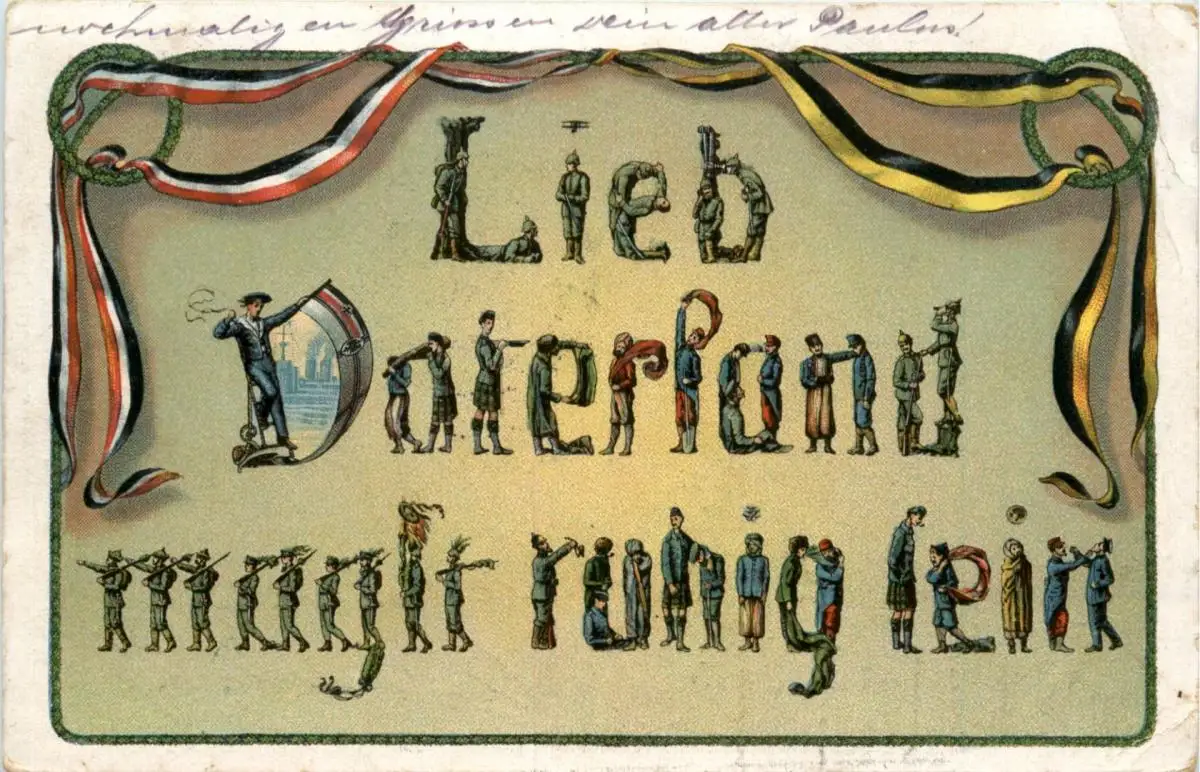 nochmaligen Grüssen dein alter Paulus!
Lieb
Vaterland
magſt ruhig ſein